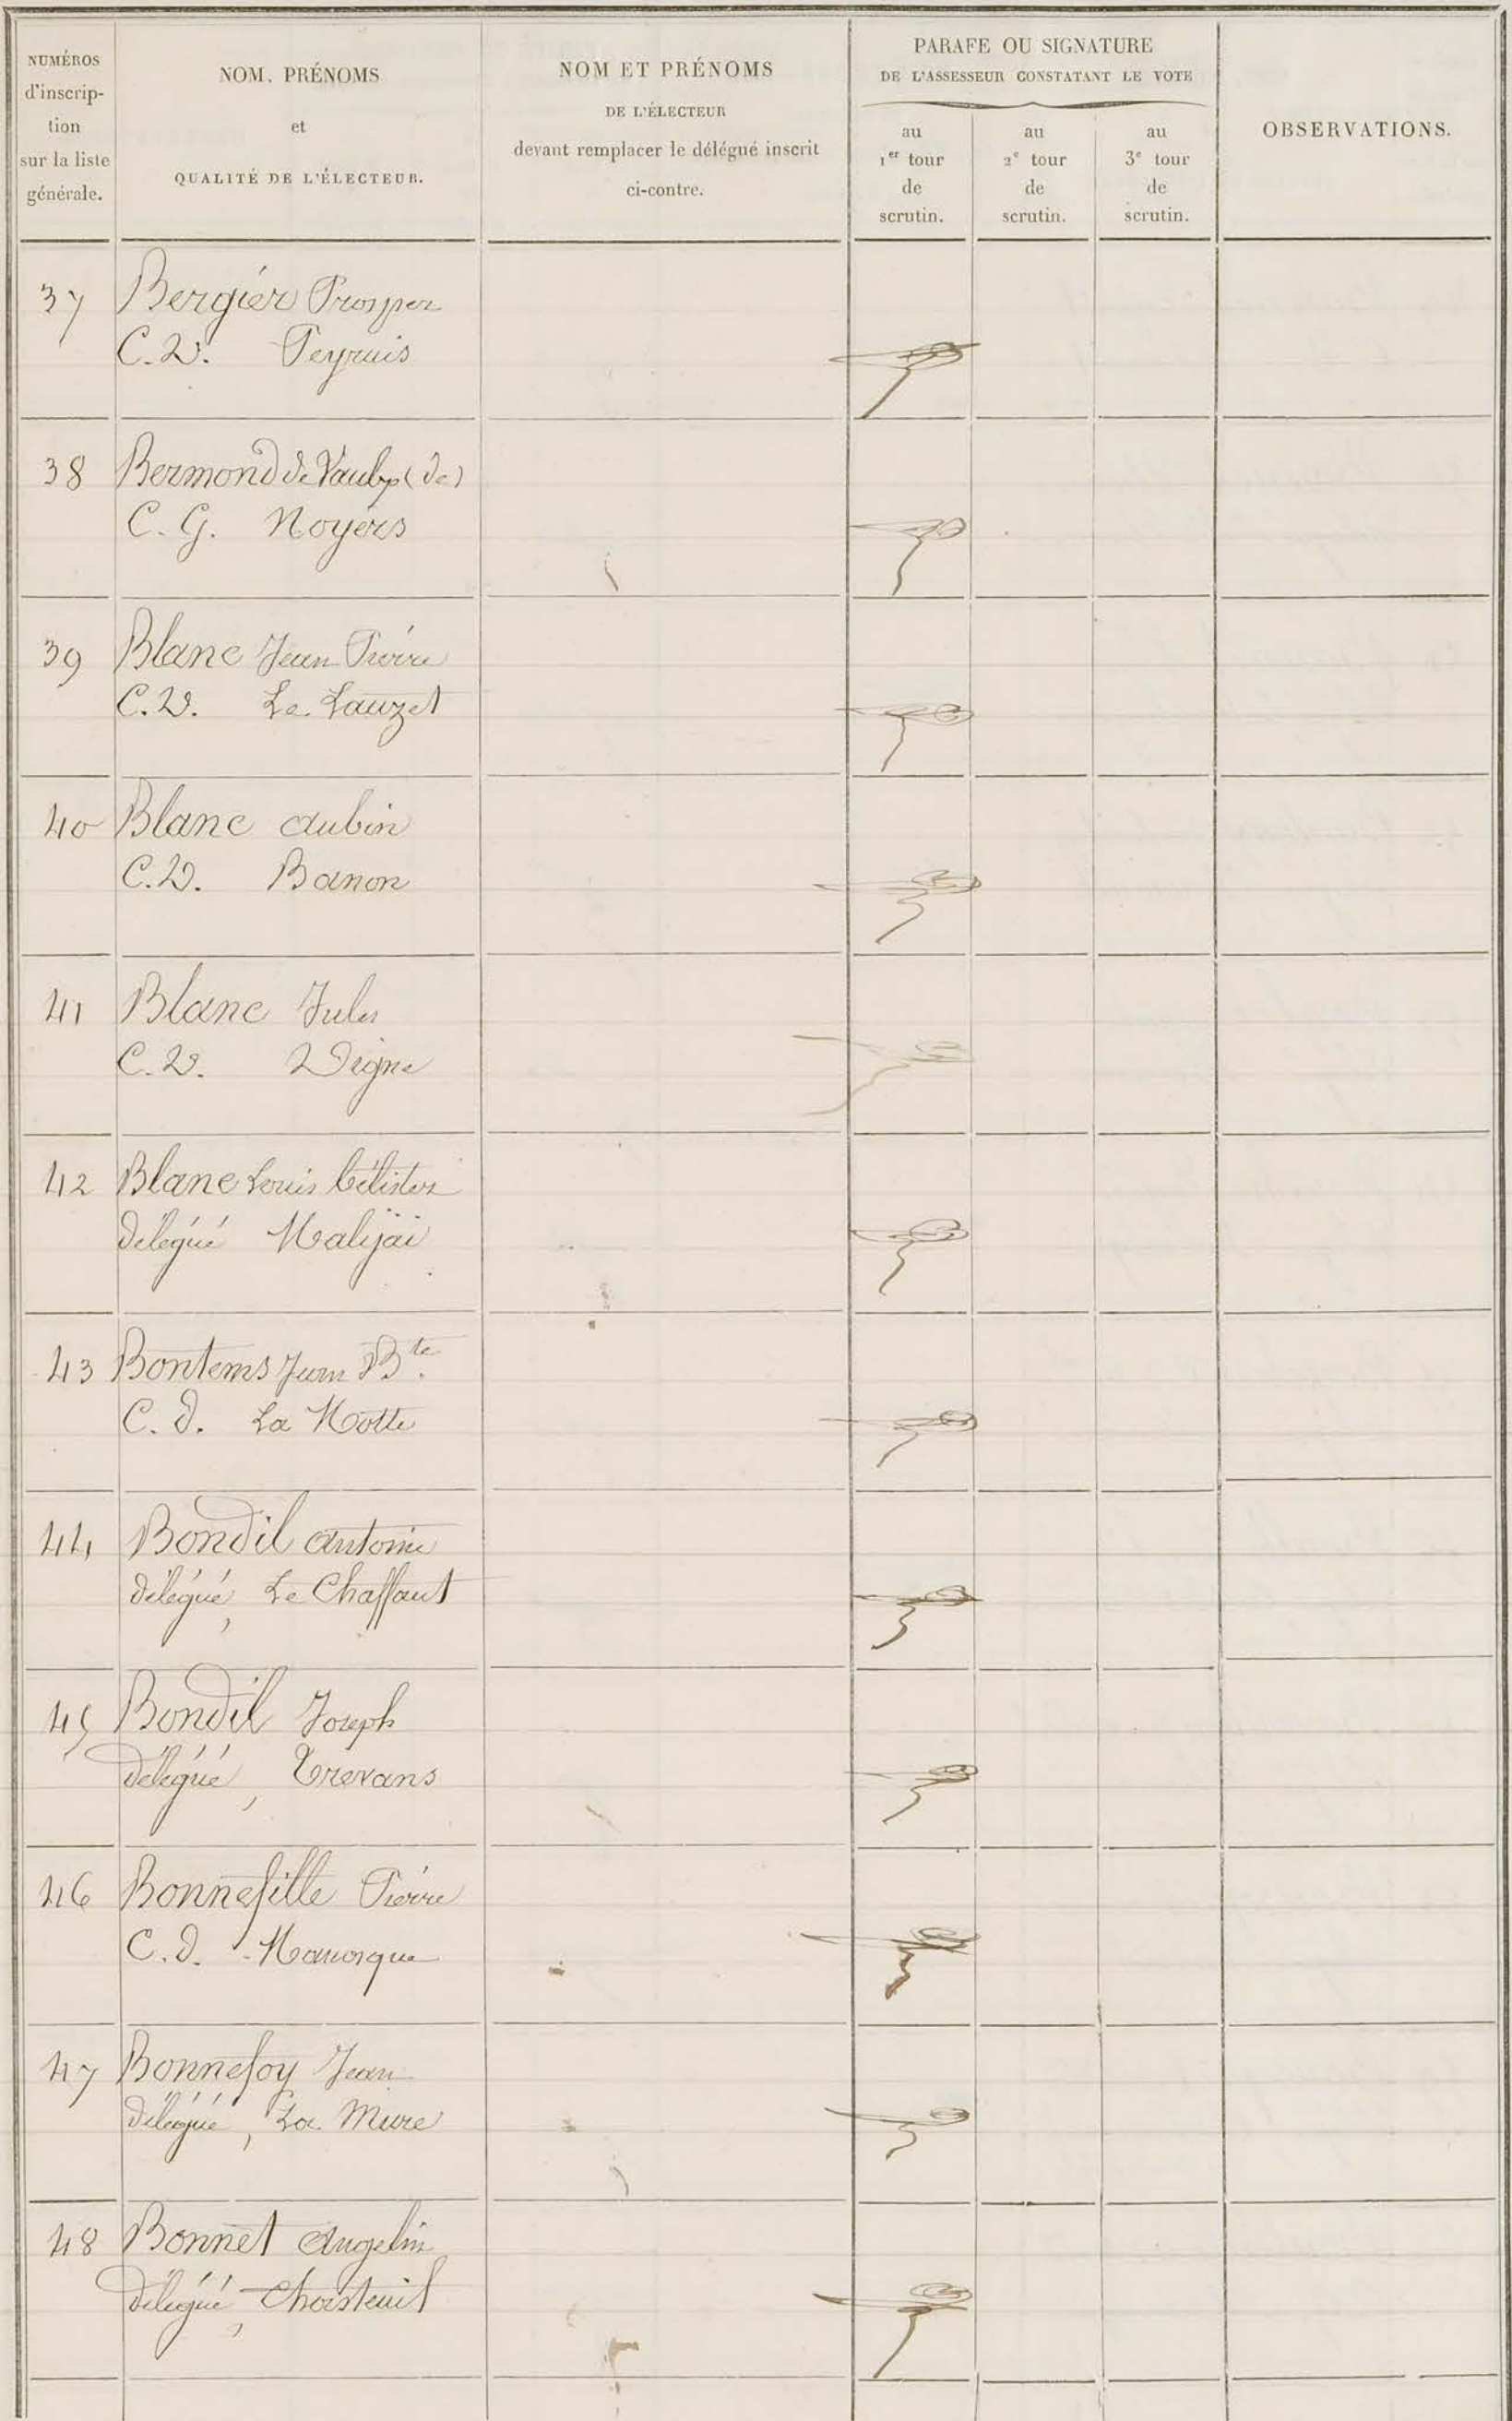 NUMÉROS
d'inscrip-
tion
sur la liste
générale.
NOM, PRÉNOMS
et
QUALITÉ DE L'ÉLECTEUR.
NOM ET PRÉNOMS
DE L'ÉLECTEUR
devant remplacer le délégué inscrit
ci-contre.
PARAFE OU SIGNATURE
DE L'ASSESSEUR CONSTATANT LE VOTE
au
1er tour
de
scrutin.
au
2e tour
de
scrutin.
au
3e tour
de
scrutin.
OBSERVATIONS.
37 Bergier Prosper
C.D. Peyruis
38 Bermond de Vaulx (de)
C.G. Noyers
39 Blanc Jean Pierre
C.D. Le Lauzet
40 Blanc Aubin
C.D. Banon
41 Blanc Jules
C.D. Digne
42 Blanc Louis Célister
délégué Malijaï
43 Bontems Jean Bte.
C.d. La Motte
44 Bondil Antoine
délégué, Le Chaffaut
45 Bondil Joseph
délégué, Trevans
46 Bonnefille Pierre
C.d. Manosque
47 Bonnefoy Jean
délégué, La Mure
48 Bonnet Angelin
délégué, Chasteuil